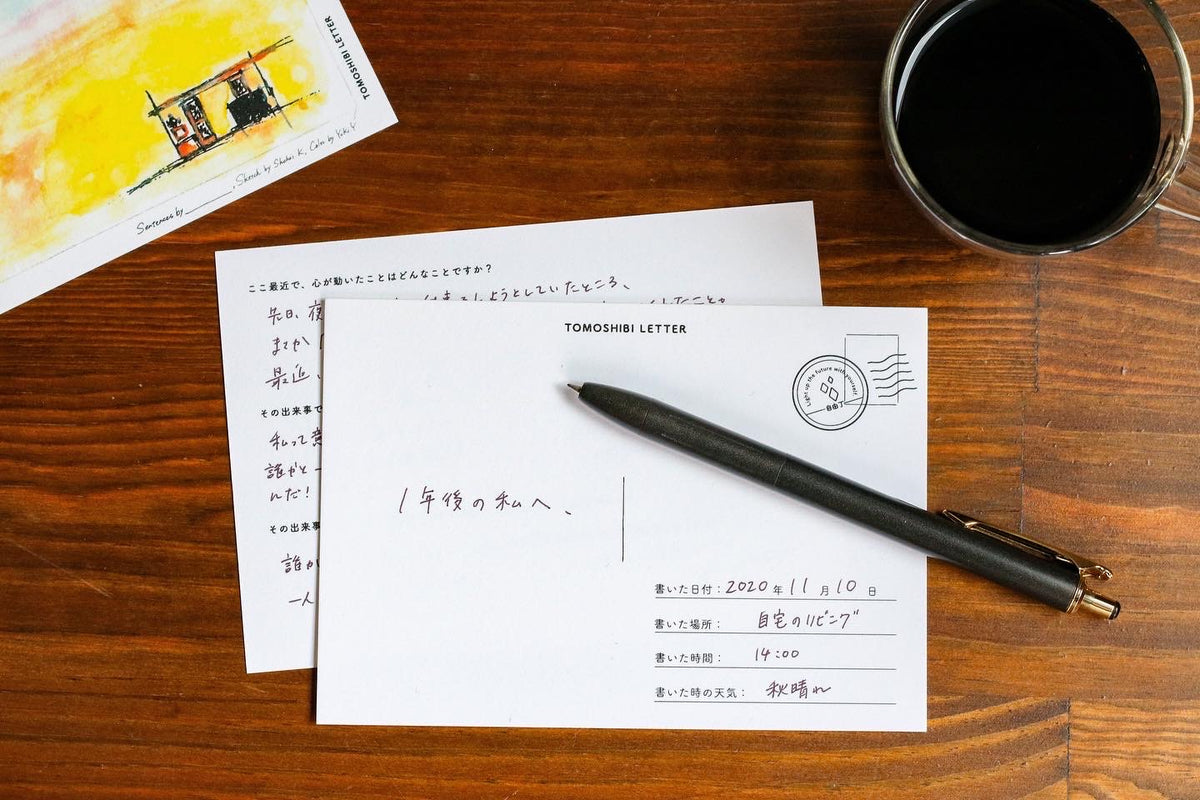 TOMOSHIBI LETTER
Sentences by , Sketch by Shohei K, Color by Yuki Y
ここ最近で、心が動いたことはどんなことですか？
先日、夜 しようとしていたところ、
まさか したこと。
最近、
その出来事で
私って意
誰かと一
んだ！
その出来事
誰か
一人
TOMOSHIBI LETTER
Light up the future with yourself.
自由丁
1年後の私へ、
書いた日付：2020年11月10日
書いた場所： 自宅のリビング
書いた時間： 14:00
書いた時の天気： 秋晴れ